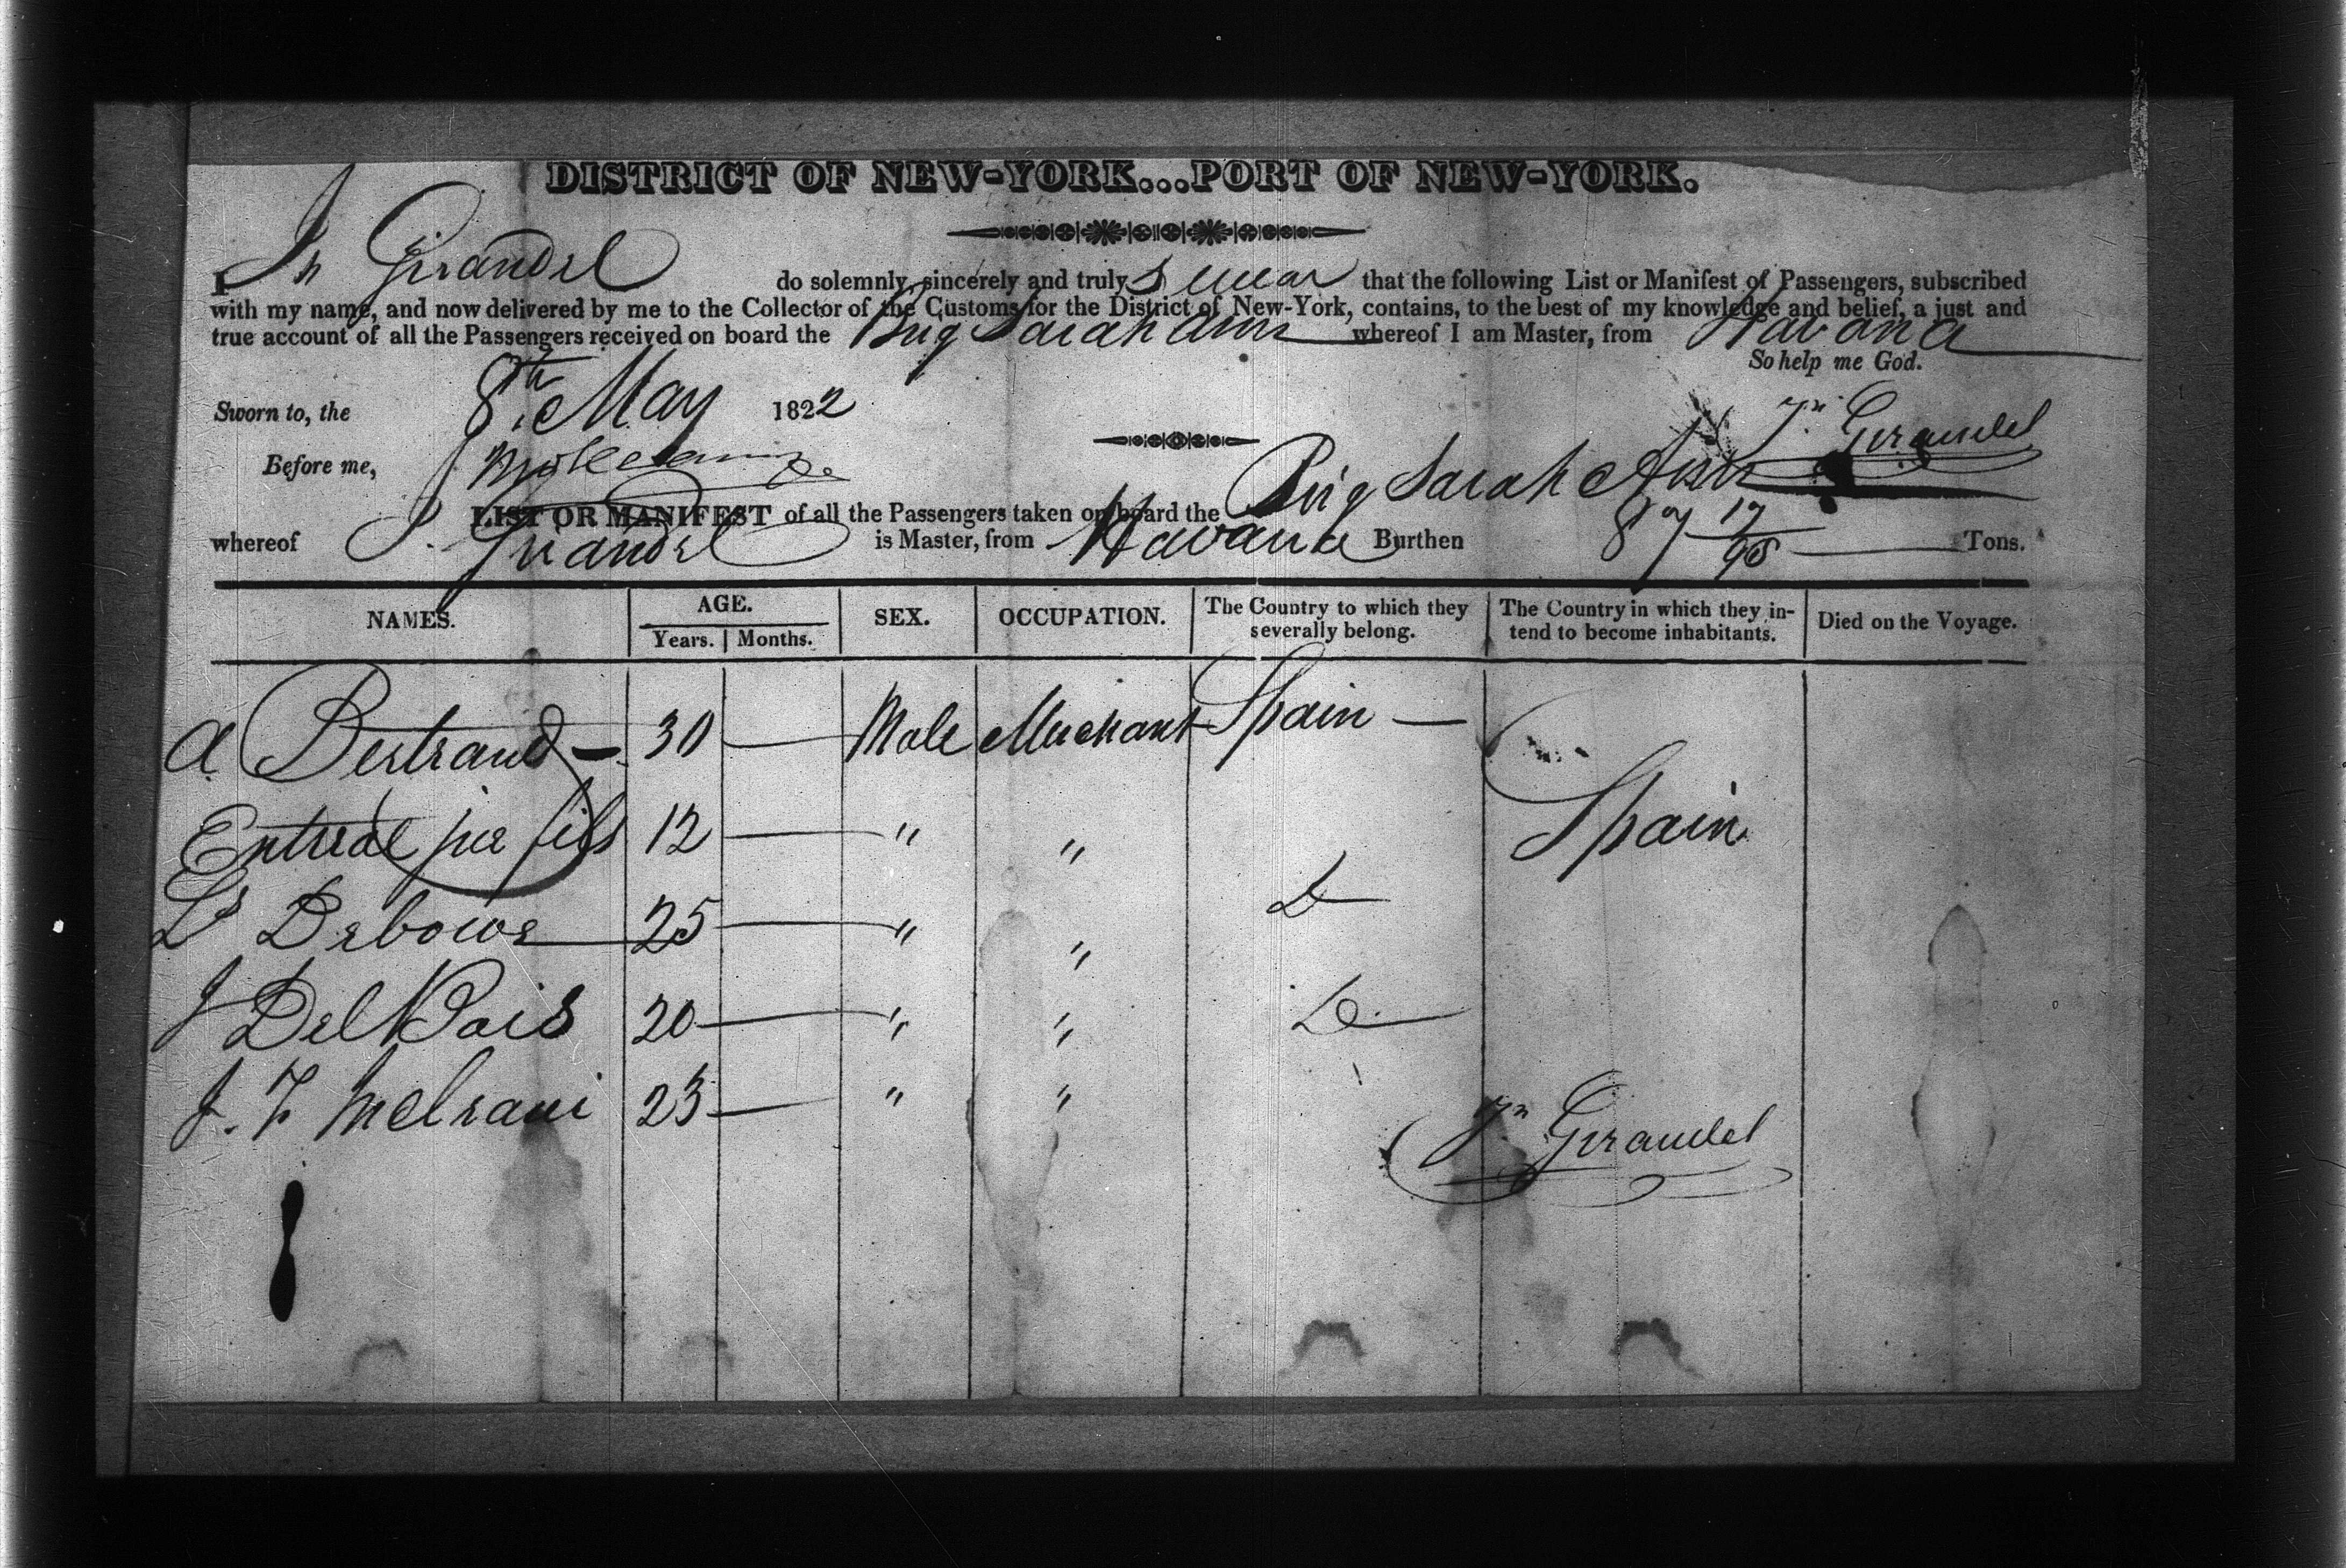 DISTRICT OF NEW-YORK...PORT OF NEW-YORK.
I Jn Girandel do solemnly, sincerely and truly swear that the following List or Manifest of Passengers, subscribed
with my name, and now delivered by me to the Collector of the Customs for the District of New-York, contains, to the best of my knowledge and belief, a just and
true account of all the Passengers received on board the Brig Sarah Ann whereof I am Master, from Havana
So help me God.
Sworn to, the 8th May 1822
Jn Girandel
Before me,
LIST OR MANIFEST of all the Passengers taken on board the Brig Sarah Ann
whereof J. Girandel is Master, from Havana Burthen 87 17/95 Tons.
NAMES. AGE. SEX. OCCUPATION. The Country to which they severally belong. The Country in which they intend to become inhabitants. Died on the Voyage.
Years. Months.
A Bertrand 30 — Male Merchant Spain —
Entral fils 12 — " " Spain
Ls Debowe 25 — " " Do
J Del Bois 20 — " " Do
J. F 23 — " "
Jn Girandel